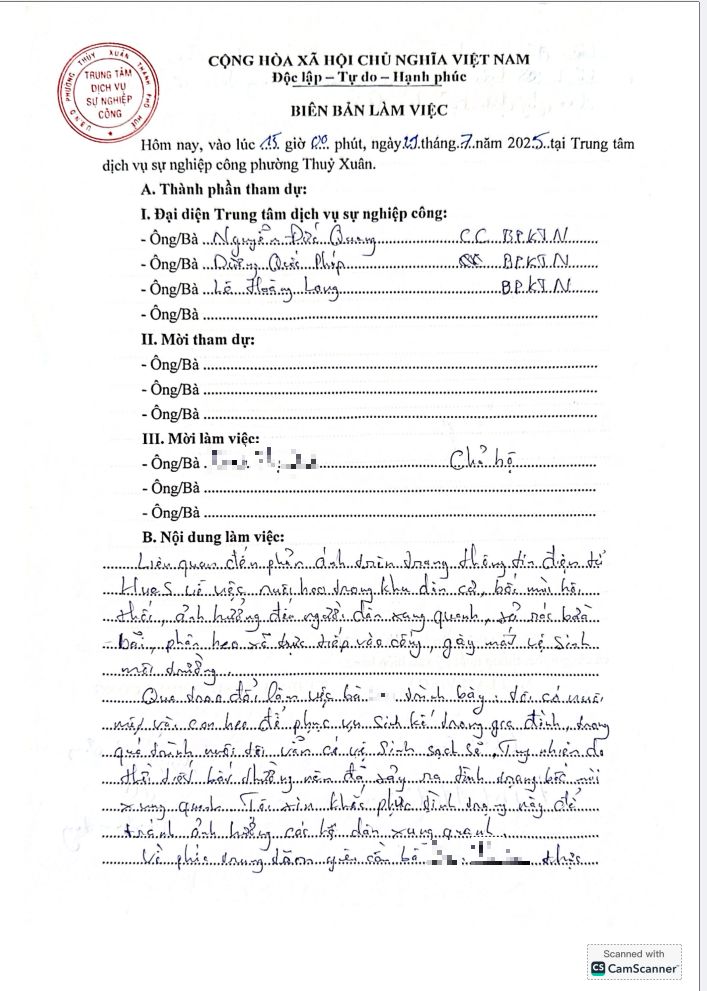 CỘNG HÒA XÃ HỘI CHỦ NGHĨA VIỆT NAM
Độc lập – Tự do – Hạnh phúc
U.B.N.D PHƯỜNG THỦY XUÂN THÀNH PHỐ HUẾ
TRUNG TÂM
DỊCH VỤ
SỰ NGHIỆP
CÔNG
BIÊN BẢN LÀM VIỆC
Hôm nay, vào lúc 15 giờ 00 phút, ngày 21 tháng 7 năm 2025 tại Trung tâm
dịch vụ sự nghiệp công phường Thuỷ Xuân.
A. Thành phần tham dự:
I. Đại diện Trung tâm dịch vụ sự nghiệp công:
- Ông/Bà Nguyễn Đức Quang CC BPKTN
- Ông/Bà Dương Quốc Pháp BPKTN
- Ông/Bà Lê Hoàng Long BPKTN
- Ông/Bà
II. Mời tham dự:
- Ông/Bà
- Ông/Bà
- Ông/Bà
III. Mời làm việc:
- Ông/Bà Chủ hộ
- Ông/Bà
- Ông/Bà
B. Nội dung làm việc:
Liên quan đến phản ánh trên trang thông tin điện tử
HueS về việc nuôi heo trong khu dân cư, bốc mùi hôi
thối, ảnh hưởng đến người dân xung quanh, rác bừa
bãi, phân heo xả trực tiếp vào cống, gây mất vệ sinh
môi trường.
Qua trao đổi làm việc bà trình bày: tôi có nuôi
mấy vài con heo để phục vụ sinh kế trong gia đình, trong
quá trình nuôi tôi vẫn có vệ sinh sạch sẽ, Tuy nhiên do
thời tiết bất thường nên đã xảy ra tình trạng bốc mùi
xung quanh. Tôi xin khắc phục tình trạng này để
tránh ảnh hưởng các hộ dân xung quanh.
Về phía trung tâm yêu cầu bà thực
Scanned with
CS CamScanner